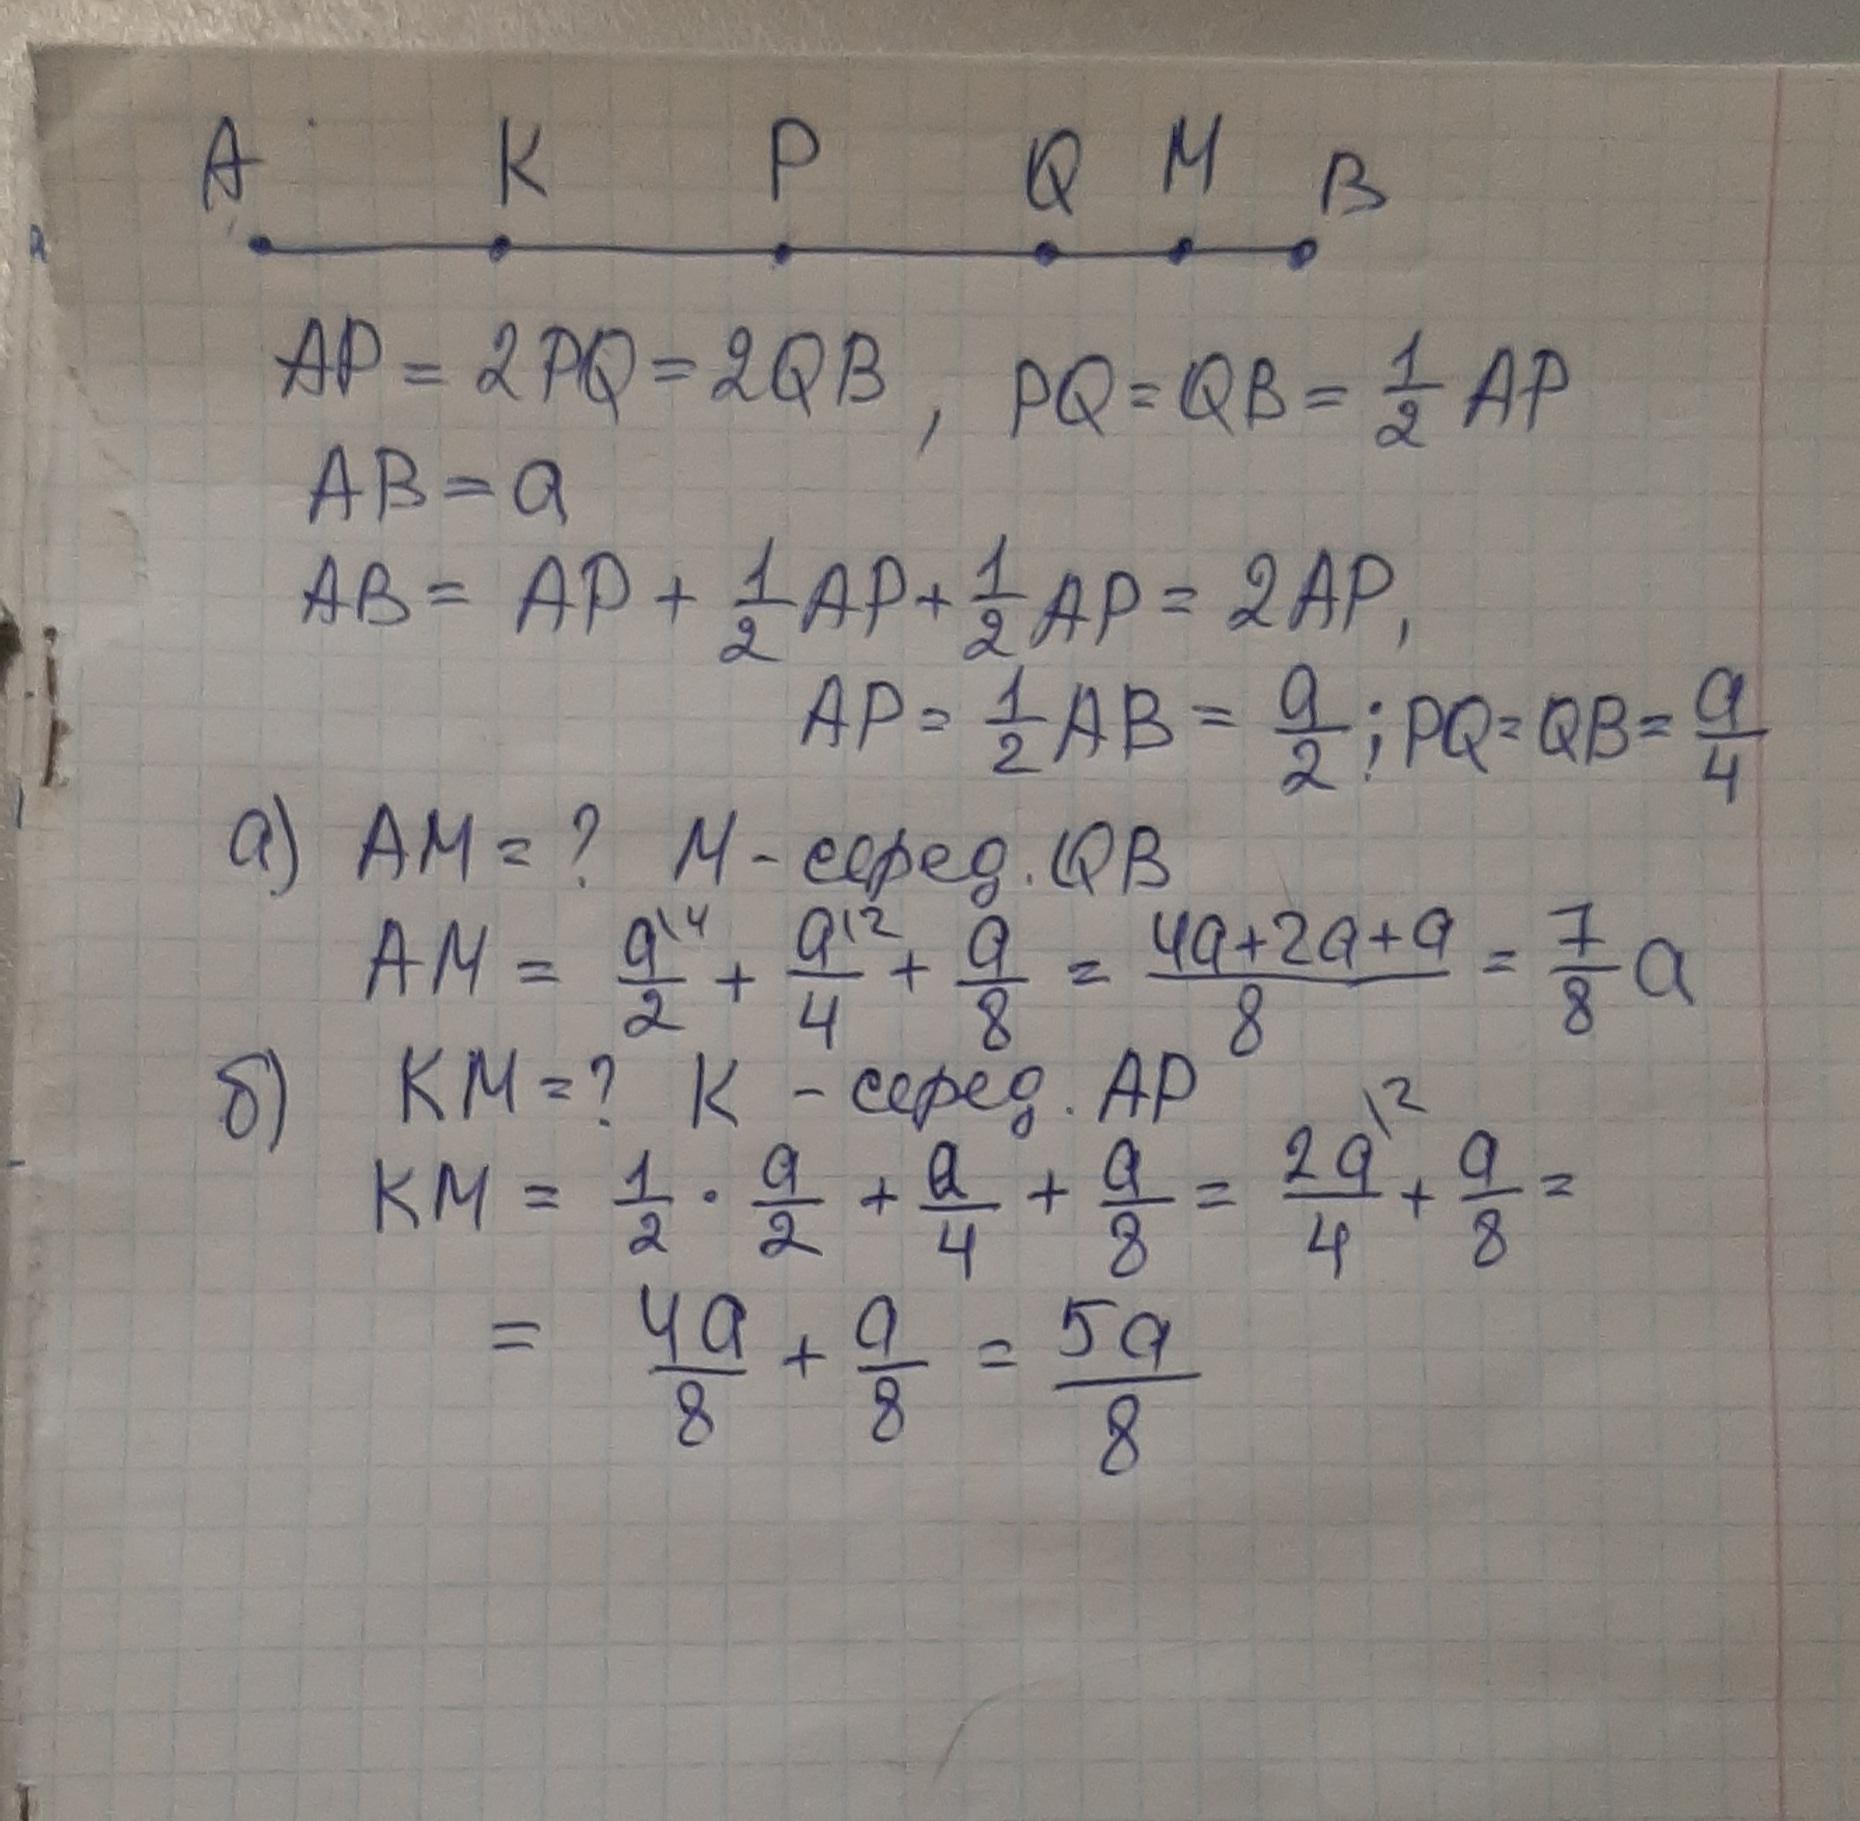 A K P Q M B
AP = 2PQ = 2QB, PQ = QB = 1/2 AP
AB = a
AB = AP + 1/2 AP + 1/2 AP = 2AP,
AP = 1/2 AB = a/2; PQ = QB = a/4
а) AM = ? M - серед. QB
AM = a\4/2 + a\2/4 + a/8 = 4a+2a+a/8 = 7/8 a
б) KM = ? K - серед. AP
KM = 1/2 · a/2 + a/4 + a/8 = 2a\2/4 + a/8 =
= 4a/8 + a/8 = 5a/8